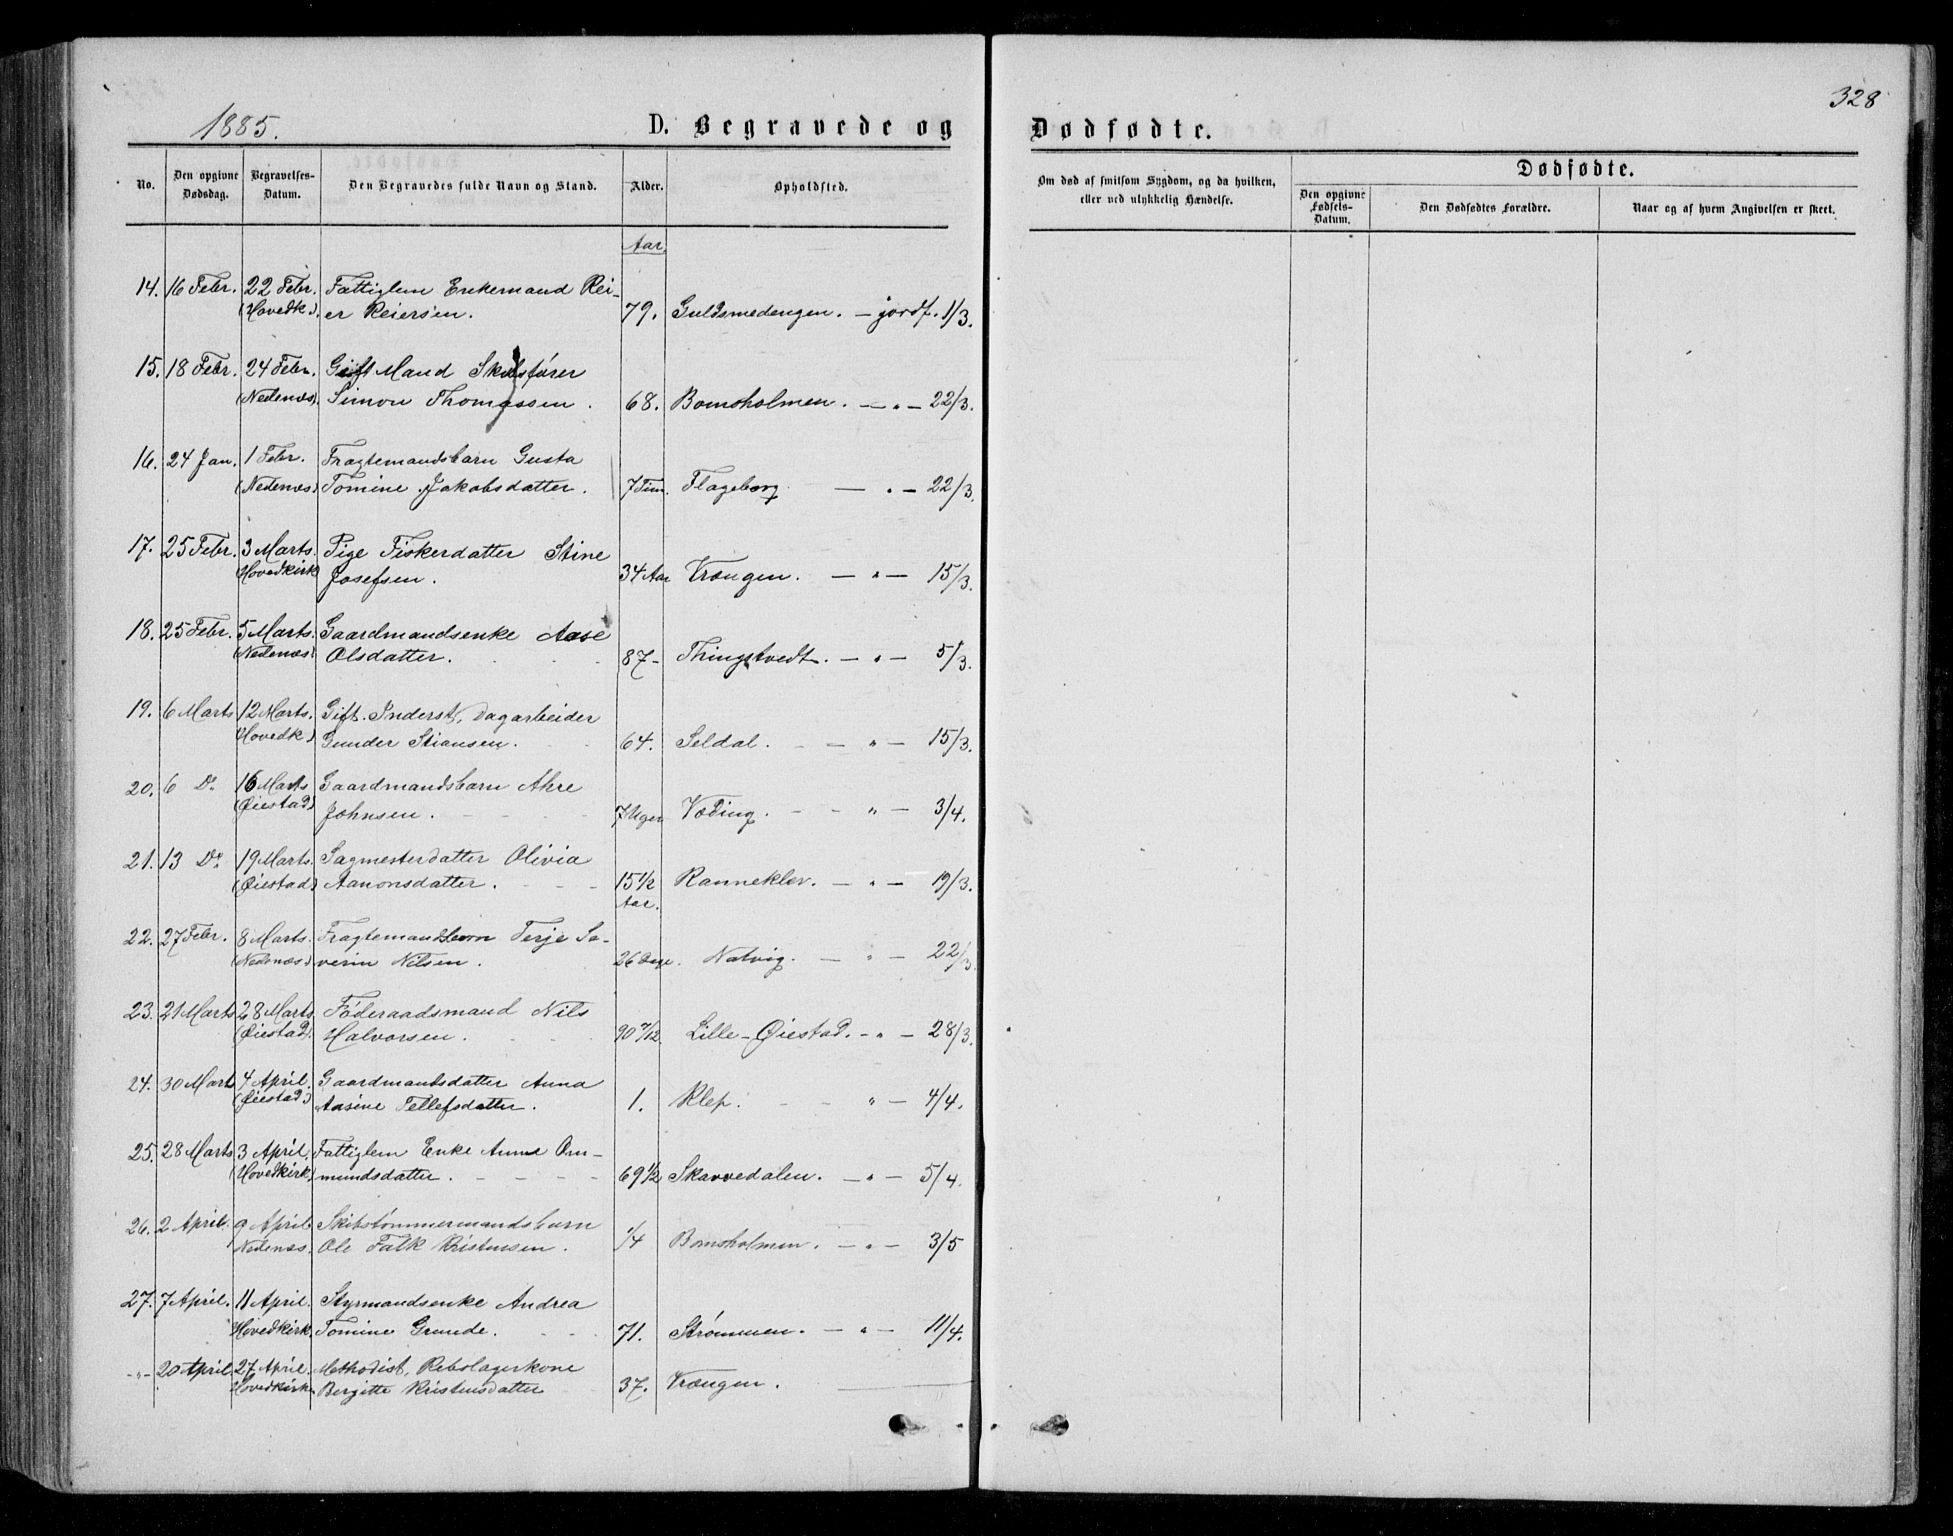 1885.
D. Begravede og
Dødfødte.
328
No.
Den opgivne Dødsdag.
Begravelses-Datum.
Den Begravedes fulde Navn og Stand.
Alder.
Opholdsted.
Om død af smitsom Sygdom, og da hvilken,
eller ved ulykkelig Hændelse.
Dødfødte.
Den opgivne Fødsels-Datum.
Den Dødfødtes Forældre.
Naar og af hvem Angivelsen er skeet.
Aar.
14. 16 Febr. 22 Febr. Fattiglem Enkemand Rei-
(Hovedk). er Reiersen. 79. Guldsmedengen. — jordf. 1/3.
15. 18 Febr. 24 Febr. Gift Mand Skibsfører
(Nedenæs). Simon Thomassen. 68. Bomsholmen. — " — 22/3.
16. 24 Jan. 1 Febr. Fragtemandsbarn Gusta
(Nedenæs) Tomine Jakobsdatter. 7 Tim. Flageborg. — " — 22/3.
17. 25 Febr. 3 Marts. Pige Fiskerdatter Stine
Hovedkirk Josefsen. 34 Aar Vrængen. — " — 15/3.
18. 25 Febr. 5 Marts. Gaardmandsenke Aase
(Nedenæs) Olsdatter. 87 - Thingstvedt. — " — 5/3.
19. 6 Marts 12 Marts. Gift. Inderst, Dagarbeider
Hovedk) Gunder Stiansen. 64. Seldal. — " — 15/3.
20. 6 Do 16 Marts Gaardmandsbarn Ahre
(Øiestad) Johnsen. 7 Uger Vøding. — " — 3/4.
21. 13 Do 19 Marts. Sagmesterdatter Olivia
(Øiestad) Aanonsdatter. 15 1/2 Ranneklev. — " — 19/3.
Aar.
22. 27 Febr. 8 Marts. Fragtemandsbarn Terje Se-
(Nedenæs.) verin Nilsen. 26 Dage. Natvig. — " — 22/3.
23. 21 Marts 28 Marts. Føderaadsmand Nils
(Øiestad). Halvorsen. 90 7/12. Lille-Øiestad. — " — 28/3.
24. 30 Marts 4 April. Gaardmandsdatter Anna
(Øiestad) Aasine Tellefsdatter. 1. Klep. — " — 4/4.
25. 28 Marts 3 April. Fattiglem Enke Anne Om-
(Hovedkirk) mundsdatter. 69 1/2 Skarvedalen. — " — 5/4.
26. 2 April. 9 April. Skibstømmermandsbarn
Nedenæs. Ole Falk Kristensen. 1/4 Bomsholmen. — " — 3/5
27. 7 April. 11 April. Styrmandsenke Andrea
Hovedkirk. Tomine Grunde. 71. Strømmen. — " — 11/4.
-"- 20 April 27 April. Methodist, Rebslagerkone
Hovedkirk. Bergitte Kristensdatter 37. Vrængen.